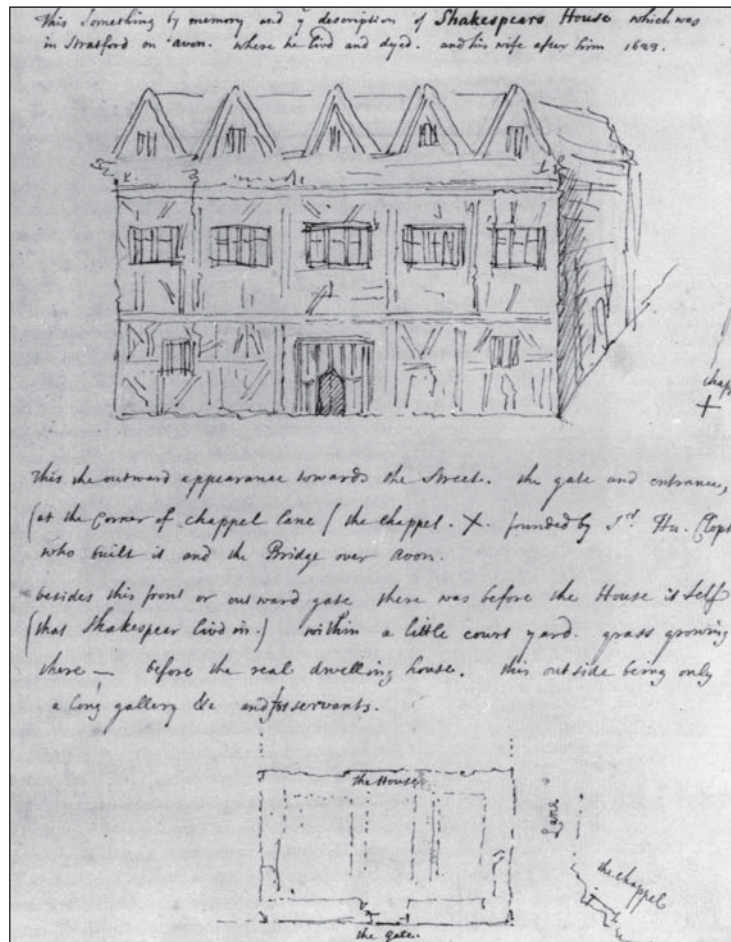 This Something by memory and yͤ description of Shakespears House which was
in Stratford on avon. where he livd and dyed. and his wife after him 1623.
chap
+
This the outward appearance towards the Street. the gate and entrance,
(at the Corner of chappel lane / the chappel. X. founded by Sʳ. Hu. Clopt
who built it and the Bridge over avon.
besides this front or outward gate there was before the House it self
(that Shakespear livd in.) within a little court yard. grass growing
there — before the real dwelling house. this outside being only
a long gallery &c and for servants.
the House
Lane
the chappel
the gate.